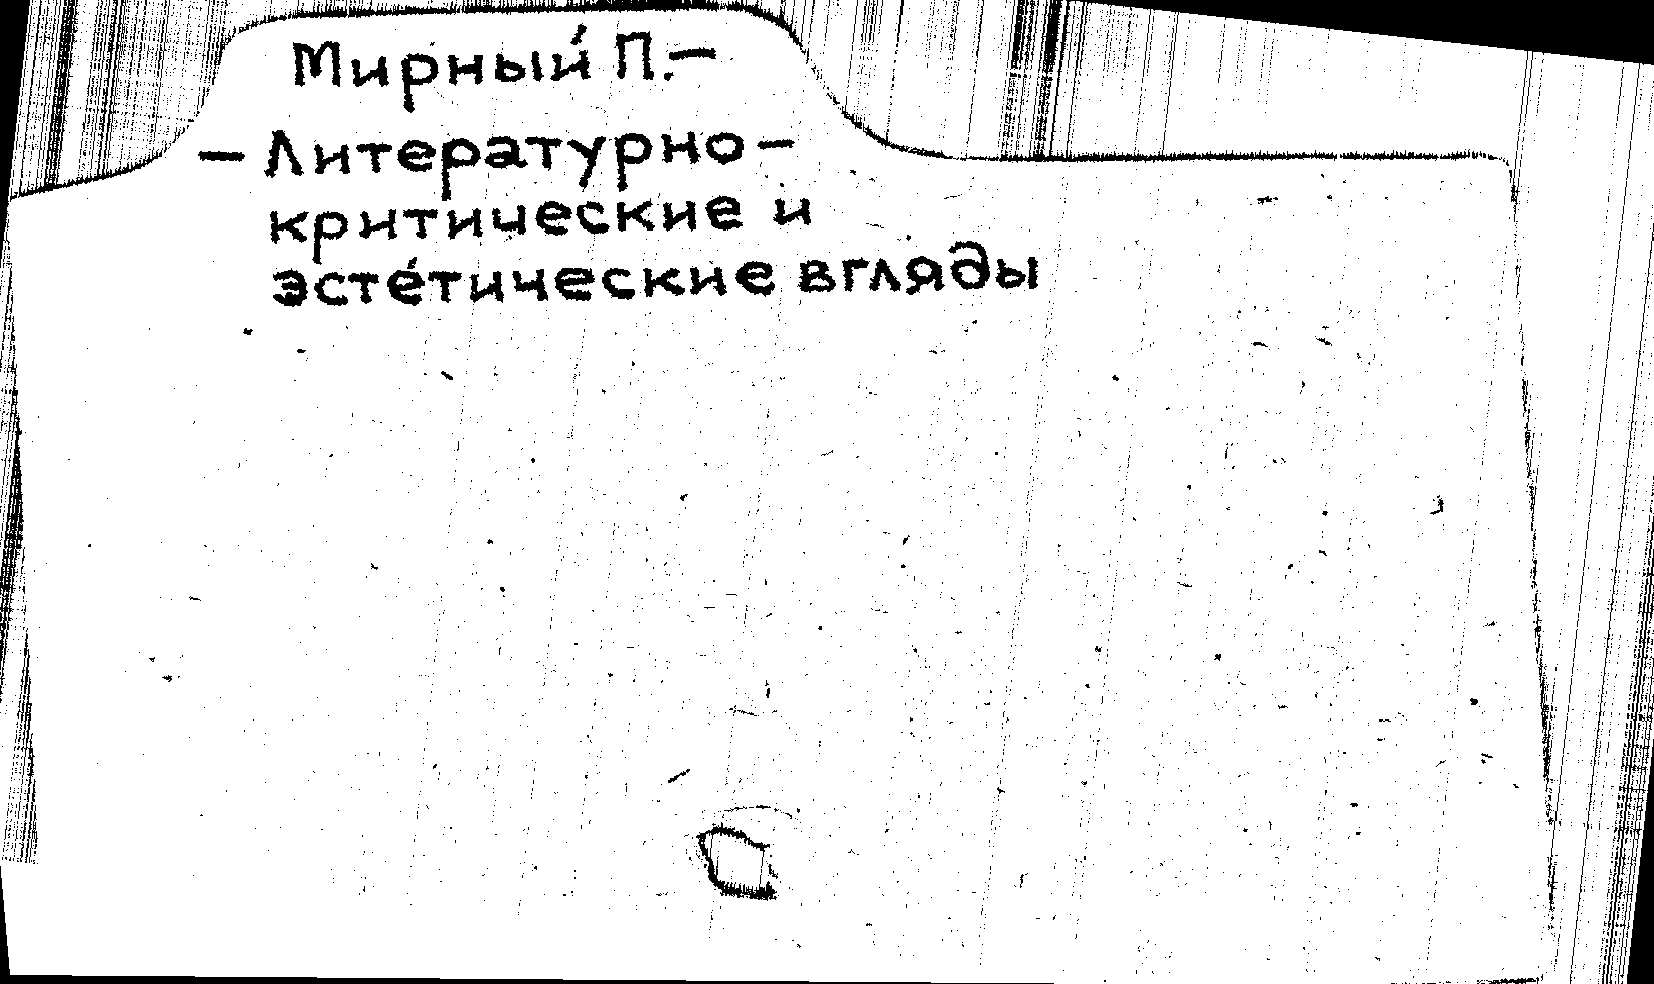 Мирный П.—
— Литературно-
критические и
эстетические вгляды